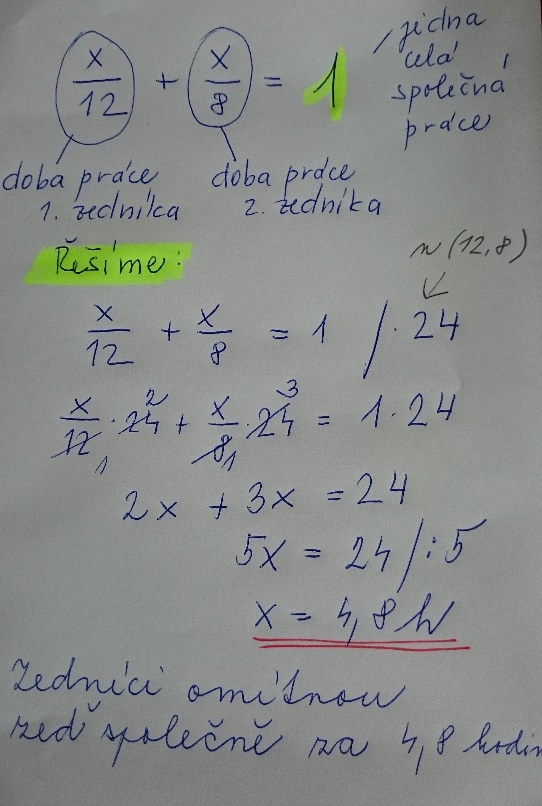 x/12 + x/8 = 1
jedna
celá
společná
práce
doba práce
1. zedníka
doba práce
2. zedníka
Řešíme:
n(12,8)
x/12 + x/8 = 1 / · 24
x/12 · 24 + x/8 · 24 = 1 · 24
1 2 1 3
2x + 3x = 24
5x = 24 / : 5
x = 4,8 h
Zedníci omítnou
zeď společně za 4,8 hodin